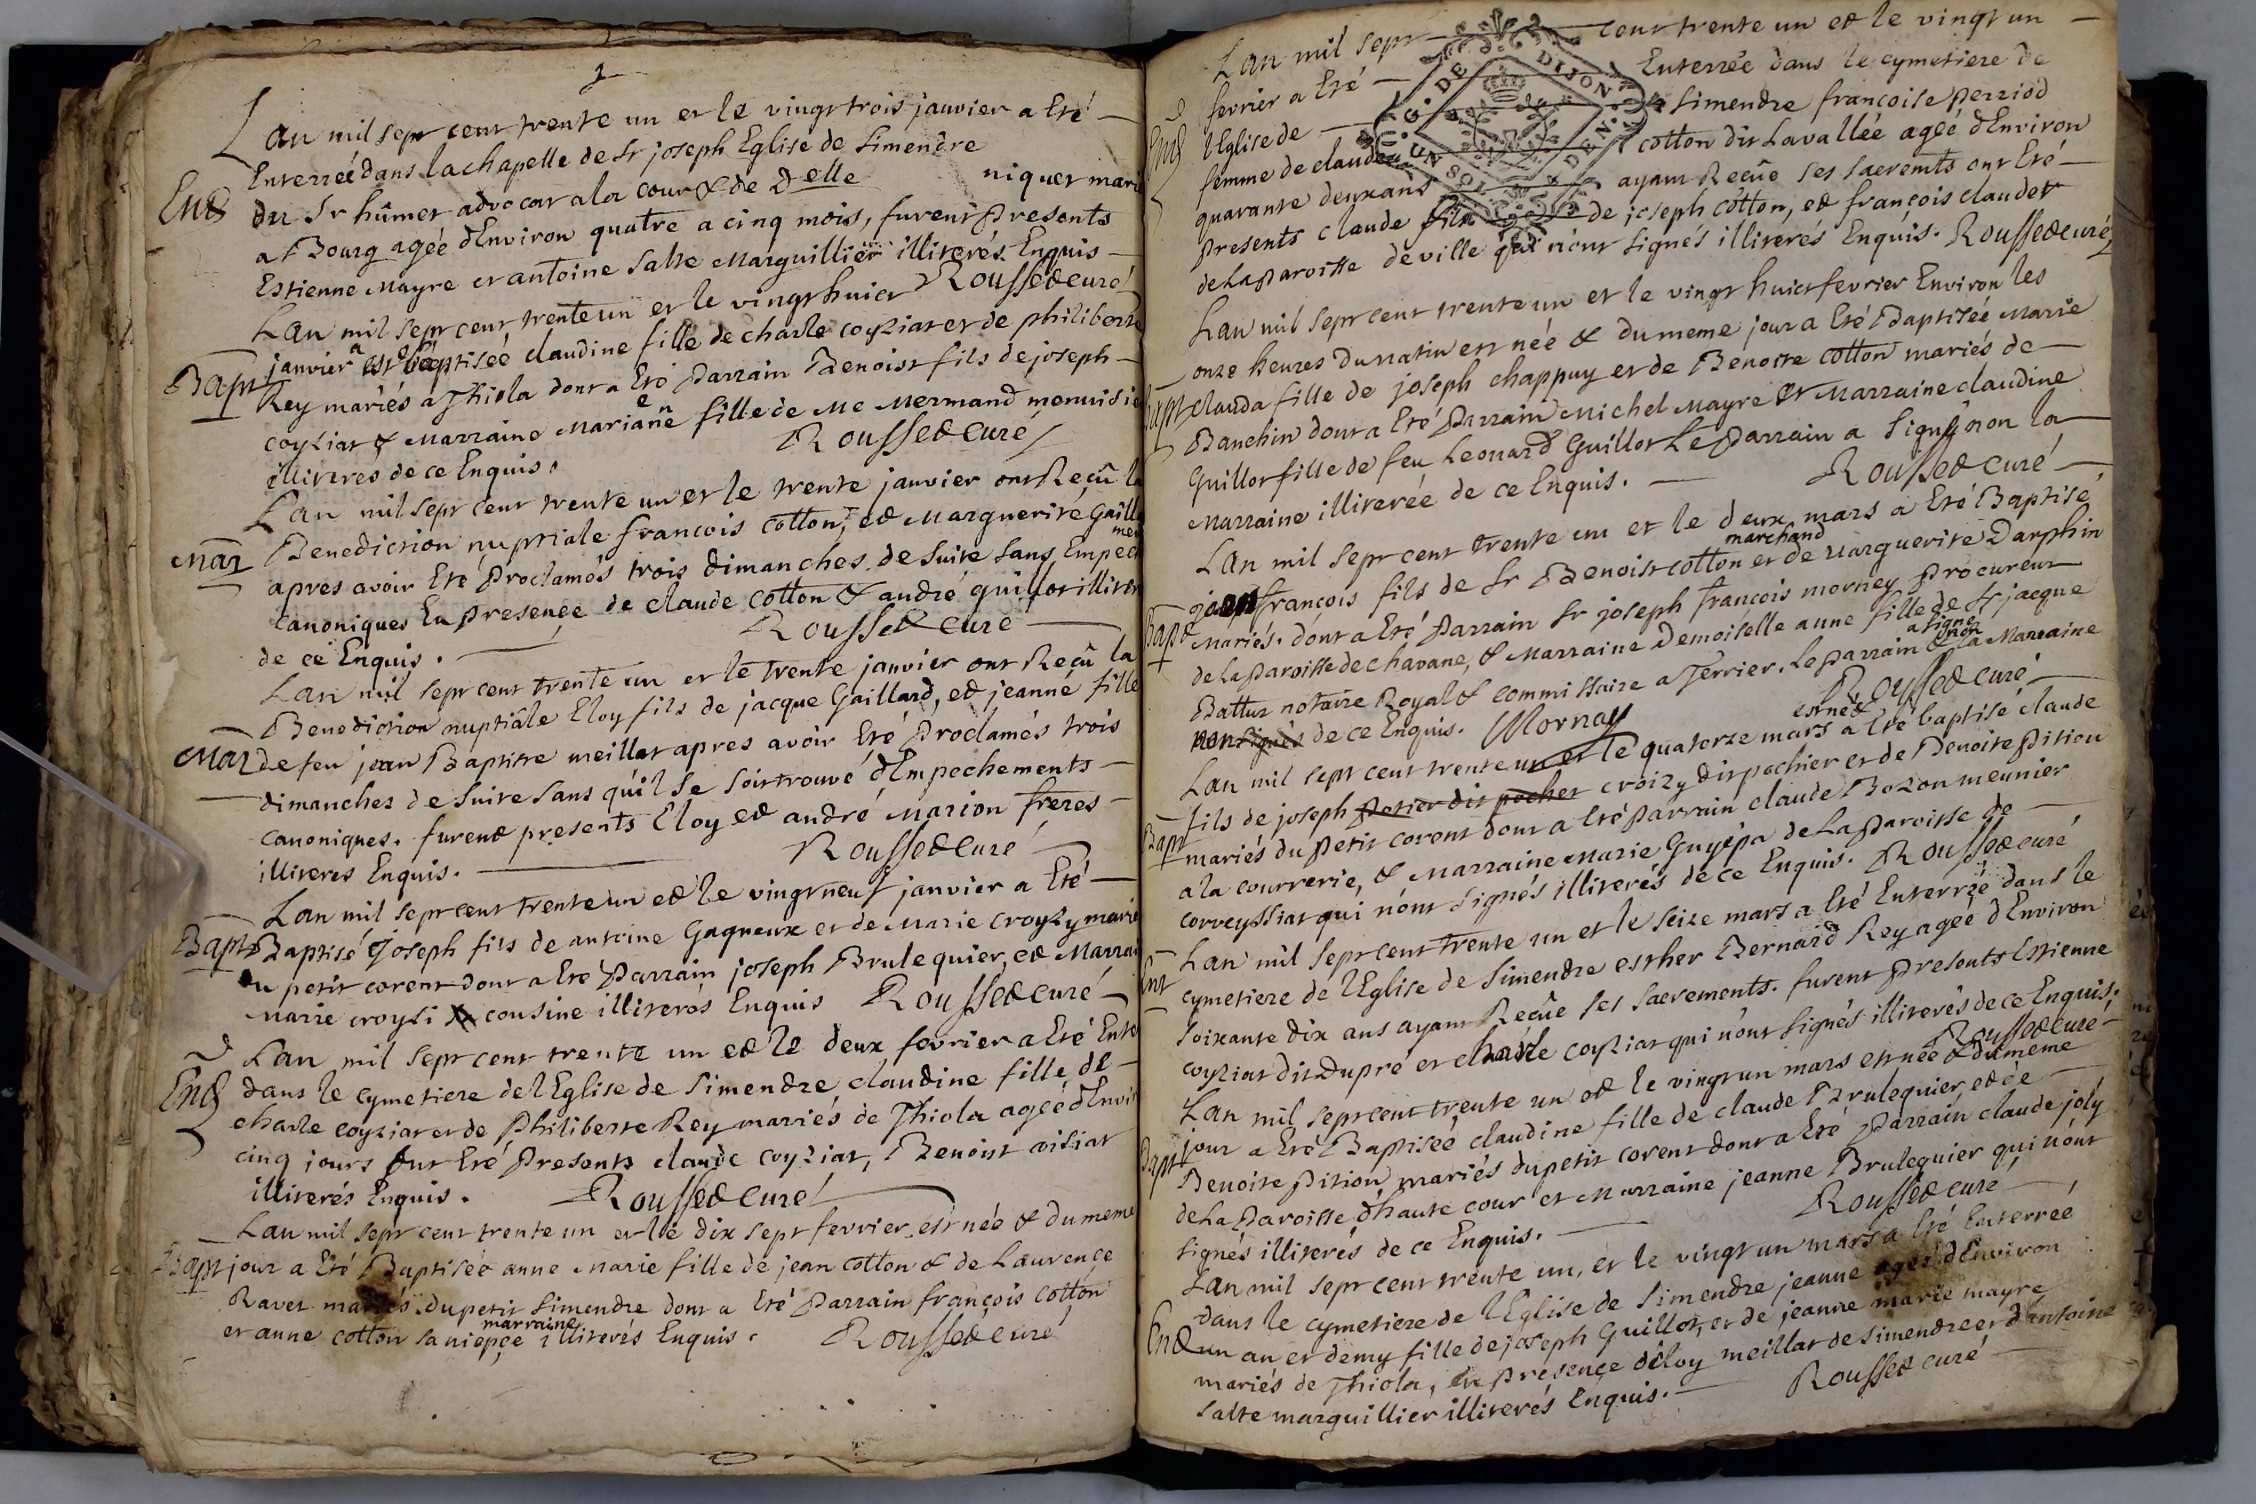 1
Lan mil sept cent trente un et le vingt trois janvier a Eté
Enterreé dans la chapelle de Sr joseph Eglise de Simendre
Ent
du Sr humet advocat a la cour & de Delle niquet mari
a Bourg ageé dEnviron quatre a cinq mois, furent presents
Estienne Mayre et antoine Salte Marguillier illiterés Enquis
Roussed curé
Lan mil sept cent trente un et le vingt huict
janvier a esté baptiseé claudine fille de charle coyziat et de philiberte
Bapt
Rey mariés a Thiola dont a Eté parrain Benoist fils de joseph
coyziat & Marraine Marianne fille de Me Mermand menuisie
illiteres de ce Enquis. Roussed curé
Lan mil sept cent trente un et le trente janvier ont Reçû la
Mar
Benediction nuptiale francois cotton, ed Marguerite Gailla
apres avoir Eté proclamés trois dimanches de suite sans Empech
mens
canoniques En presence de claude cotton & andré guillot illiter
de ce Enquis. Roussed curé
Lan mil sept cent trente un et le trente janvier ont Reçû la
Benediction nuptiale Eloy fils de jacque Gaillard, ed jeanne fille
Mar de feu jean Baptiste meillat apres avoir Eté proclamés trois
dimanches de suite sans qu'il se soit trouvé d'Empechements
canoniques. furend presents Eloy ed andré Marion freres
illiteres Enquis. Roussed curé
Lan mil sept cent trente un ed le vingt neuf janvier a Eté
Bapt Baptisé joseph fils de antoine Gagneux et de Marie croyzy marié
du petit corent dont a Eté parrain joseph Brulequier, ed Marrai
Marie croyzi sa cousine illiterés Enquis Roussed curé
Lan mil sept cent trente un ed le deux fevrier a Eté Enter
End
dans le cymetiere de lEglise de Simendre claudine fille de
charle coyziat et de philiberte Rey mariés de Thiola ageé dEnvir
cinq jours ont Eté presents claude coyziat, Benoist visiat
illiterés Enquis. Roussed curé
Lan mil sept cent trente un et le dix sept fevrier est née & du meme
Bapt jour a Eté Baptiseé anne Marie fille de jean cotton & de Laurence
Ravet mariés du petit Simendre dont a Eté parrain françois cotton
marraine
et anne cotton sa niepçe illiterés Enquis. Roussed curé
Lan mil sept cent trente un ed le vingt un
fevrier a Eté Enterreé dans le cymetiere de
End
lEglise de Simendre françoise perriod
G. DE DIJON
UN SOL
femme de claude cotton dit Lavallée ageé dEnviron
quarante deux ans ayant Reçûe ses sacremts ont Eté
presents claude fils de joseph cotton, ed françois claudet
de La paroisse de ville qui n'ont signés illiterés Enquis. Roussed curé
Lan mil sept cent trente un et le vingt huict fevrier Environ les
onze heures du matin est née & du meme jour a Eté Baptiseé Marie
Bapt
clauda fille de joseph chappuy et de Benoite cotton mariés de
Banchin dont a Eté parrain Michel Mayre et Marraine claudine
Guillot fille de feu Leonard Guillot Le parrain a signé non la
Marraine illitereé de ce Enquis. Roussed curé
Lan mil sept cent trente un et le deux mars a Eté Baptisé
marchand
jean françois fils de Sr Benoist cotton et de Marguerite Darphin
Bapt
Mariés. dont a Eté parrain Sr joseph francois mornay procureur
de La paroisse de chavane, & Marraine Demoiselle anne fille de Sr jacque
a signe
non
Battur notaire Royal & commissaire a Terrier. Le parrain & la Marraine
non signés de ce Enquis. Mornay Roussed curé
est né &
Lan mil sept cent trente un et le quatorze mars a Eté baptisé claude
fils de joseph perier dit pocher croizy dit pochier et de Benoite pition
Bapt
mariés du petit corent dont a Eté parrain claude Bozon meunier
a la courrerie, & Marraine Marie Guyépa de La paroisse de
corveyssiat qui n'ont signés illiterés de ce Enquis. Roussed curé
Lan mil sept cent trente un et le seize mars a Eté Enterreé dans le
Ent
cymetiere de lEglise de Simendre esther Bernard Rey ageé dEnviron
soixante dix ans ayant Reçûe ses sacrements. furent presents Estienne
coyziat dit Dupré et charle coyziat qui n'ont signés illiterés de ce Enquis.
Roussed curé
Lan mil sept cent trente un ed le vingt un mars est née & du meme
jour a Eté Baptiseé claudine fille de claude Brulequier, ed de
Bapt
Benoite pition mariés du petit corent dont a Eté parrain claude joly
de La paroisse d'haute cour et Marraine jeanne Brulequier qui n'ont
signés illiterés de ce Enquis. Roussed curé
Lan mil sept cent trente un, et le vingt un mars a Eté Enterreé
dans le cymetiere de lEglise de Simendre jeanne agée dEnviron
End
un an et demy fille de joseph Guillot, et de jeanne marie mayre
mariés de Thiola, En presençe déloy meillat de Simendre et d'antoine
Salte marguillier illiterés Enquis. Roussed curé